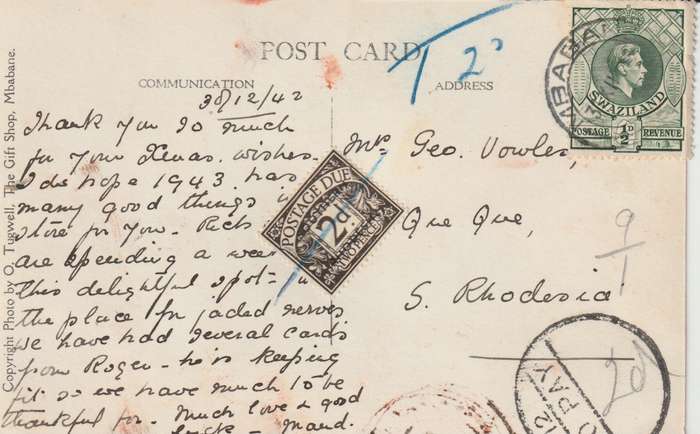 POST CARD
T 2d
COMMUNICATION
ADDRESS
30/12/42
Thank you so much
for your Xmas wishes.
I do hope 1943 has
many good things in
store for you.
are spending a week
this delightful spot -
the place for jaded nerves
we have had several cards
from Roger - he is keeping
fit so we have much to be
thankful for. Much love & good
luck - Maud.
Mrs Geo. Vowles,
Que Que,
S. Rhodesia
9/1
POSTAGE DUE
2d
TWO PENCE
MBABANE
SWAZILAND
POSTAGE ½D REVENUE
TO PAY
2d
Copyright Photo by O. Tugwell, The Gift Shop, Mbabane.